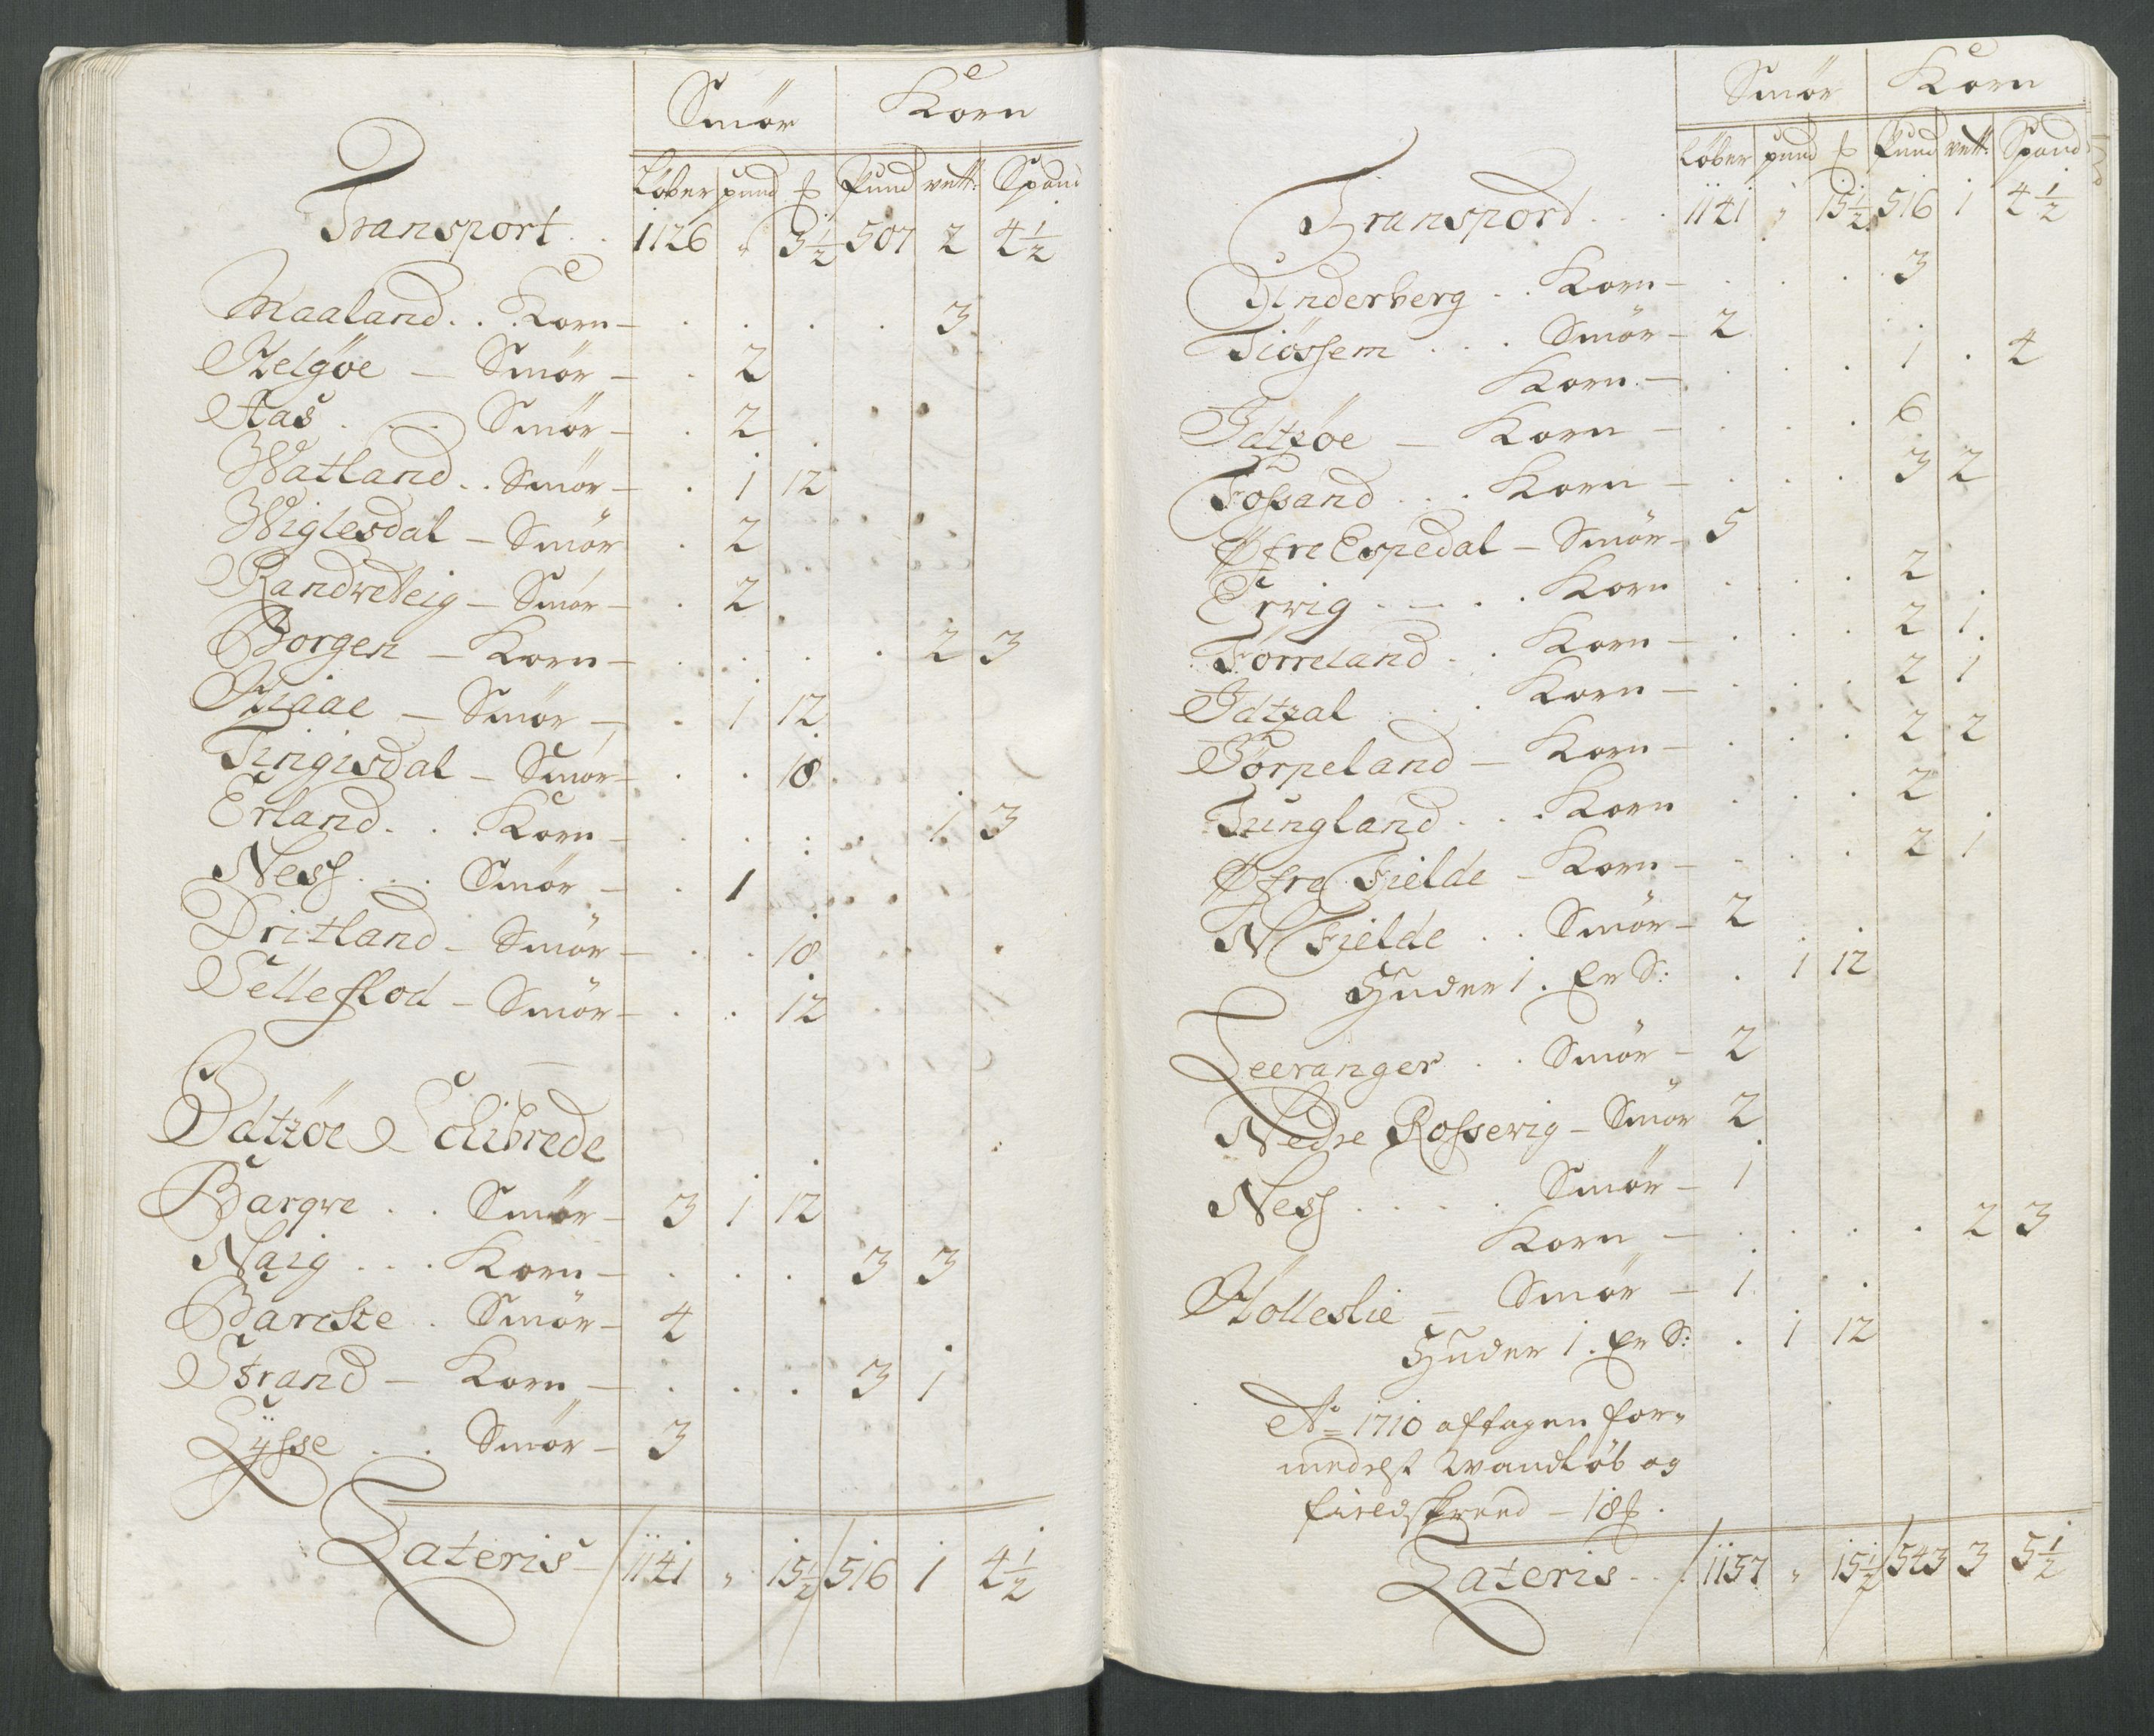 Smör Korn
Löber pund ℔ Pund vett: Spand
Transport . . 1126 " 3½ 507 2 4½
Maaland . . Korn – . . . . 3
Helgöe – Smör – . 2
Aas . . . Smör – . 2
Watland . . Smör – . 1 12
Wiglesdal – Smör . 2
Randveteig – Smör – . 2
Borgen – Korn – . . . . 2 3
Hiaae – Smör – . 1 12
Tingisdal – Smör – . . 18
Erland . . Korn – . . . . 1 3
Ness . . . Smör – . 1
Dritland – Smör – . . 18
Selleflod – Smör – . . 12
Idtzöe Schibrede
Bargve . . Smör – 3 1 12
Naig . . . Korn – . . . 3 3
Barcke . Smör – 4
Strand – Korn – . . . 3 1
Lÿsse . . . Smör – 3
Lateris – 1141 " 15½ 516 1 4½
Smör Korn
Löber pund ℔ Pund vett: Spand
Transport . . . 1141 " 15½ 516 1 4½
Underberg . . Korn – . . . 3
Tiössem . . . Smör – 2
Korn – . . . 1 . 4
Idtzöe – Korn – . . . 6
Fossand . . . Korn – . . . 3 2
Øfre Espedal – Smör – 5
Ervig . – . . Korn . . . 2
Förreland . . Korn – . . . 2 1
Idtzal . . . Korn – . . . 2 1
Jörpeland – Korn – . . . 2 2
Tungland . . . Korn . . . 2
Øfre Fielde – Korn – . . . 2 1
N Fielde . . Smör – 2
Huder 1 . Er S: . 1 12
Leeranger . . Smör – 2
Nedre Rossevig – Smör 2
Ness . . . . Smör – 1
Korn – . . . . 2 3
Hölleslie – Smör – 1
Huder 1 . Er S: . 1 12
Ao 1710 aftagen for-
medelst Wandløb og
fieldskreed – 18 ℔ .
Lateris . . 1157 " 15½ 543 3 5½